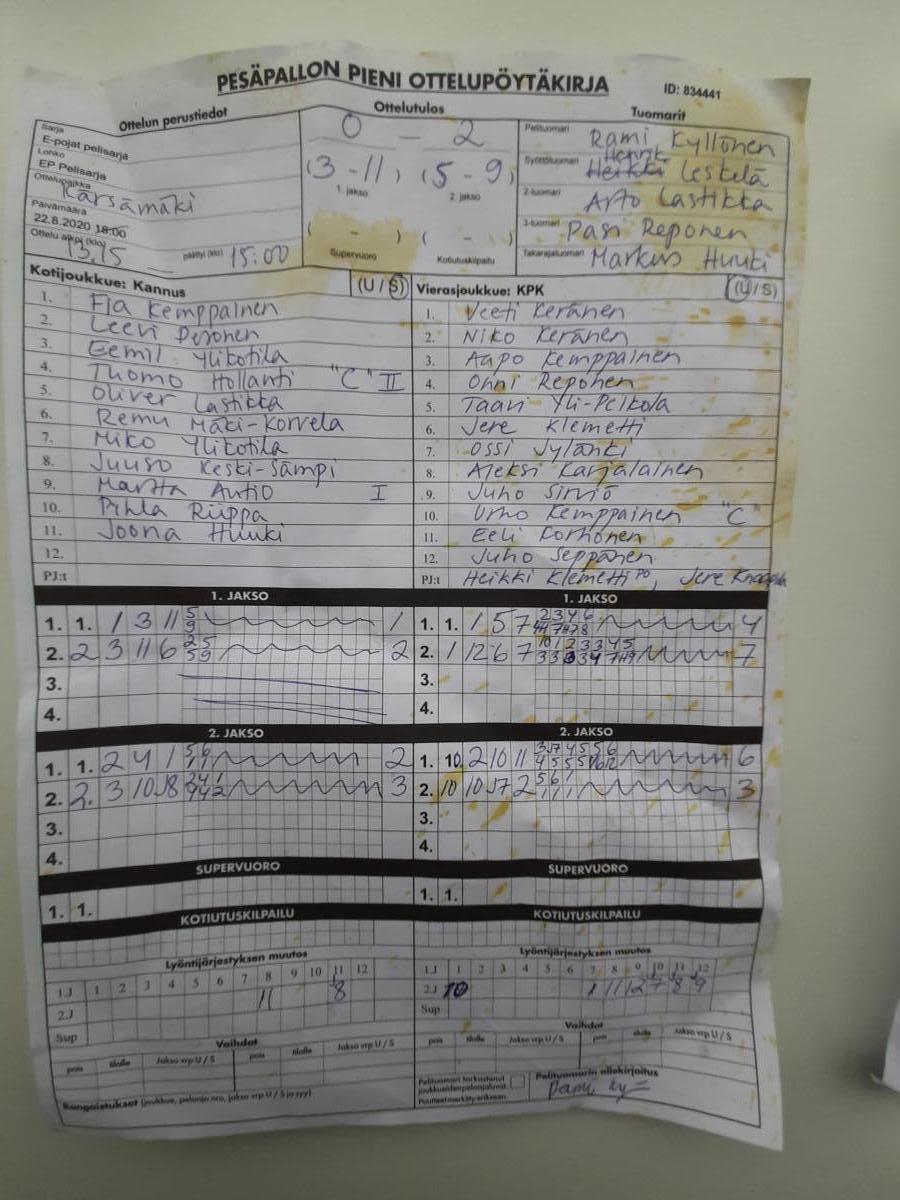 PESÄPALLON PIENI OTTELUPÖYTÄKIRJA
ID: 834441
Ottelun perustiedot
Ottelutulos
Tuomarit
Sarja
E-pojat pelisarja
Lohko
EP Pelisarja
Ottelupaikka
Kärsämäki
Päivämäärä
22.8.2020 18:00
Ottelu alkoi (klo) 13.15 päättyi (klo) 15:00
0 – 2
(3 - 11) (5 - 9)
1. jakso 2. jakso
( - ) ( - )
Supervuoro Kotiutuskilpailu
Pelituomari Rami Kyllönen
Syöttötuomari Henrik Leskelä
2-tuomari Arto Lastikka
3-tuomari Pasi Reponen
Takarajatuomari Markus Huuki
Kotijoukkue: Kannus (U / S)
1. Kemppainen
2. Leevi Pesonen
3. Eemil Ylikotila
4. Tuomo Hollanti "C" II
5. Oliver Lastikka
6. Remu Mäki-Korvela
7. Miko Ylikotila
8. Juuso Keski-Sämpi
9. Martta Autio I
10. Pihla Riippa
11. Joona Huuki
12.
PJ:t
Vierasjoukkue: KPK (U / S)
1. Veeti Keränen
2. Niko Keränen
3. Aapo Kemppainen
4. Onni Reponen
5. Taavi Yli-Pelkola
6. Jere Klemetti
7. Ossi Jylänki
8. Aleksi Karjalainen
9. Juho Sirviö
10. Urho Kemppainen "C"
11. Eeli Korhonen
12. Juho Seppänen
PJ:t Heikki Klemetti PO, Jere
1. JAKSO
1. 1. 1 3 11 5 9 1
2. 2 3 11 6 2 5 5 9 2
3.
4.
1. JAKSO
1. 1. 1 5 7 2 3 4 6 4
2. 1 12 6 7 7
3.
4.
2. JAKSO
1. 1. 2 4 1 2
2. 2. 3 10 3
3.
4.
2. JAKSO
1. 10. 2 10 11 6
2. 10 10 2 5 6 1 3
3.
4.
SUPERVUORO
1. 1.
SUPERVUORO
1. 1.
KOTIUTUSKILPAILU
KOTIUTUSKILPAILU
Lyöntijärjestyksen muutos
1.J 1 2 3 4 5 6 7 8 9 10 11 12
2.J 11 8
Sup
Lyöntijärjestyksen muutos
1.J 1 2 3 4 5 6 7 8 9 10 11 12
2.J 10 1 11 12 7 8 9
Sup
Vaihdot
pois tilalle Jakso vrp U / S pois tilalle Jakso vrp U / S
Vaihdot
pois tilalle Jakso vrp U / S pois tilalle Jakso vrp U / S
Rangaistukset (joukkue, pelaaja nro, jakso vrp U / S ja syy)
Pelituomari tarkastanut
joukkueiden pelaajaluvat.
Puutteet merkitty erikseen.
Pelituomarin allekirjoitus